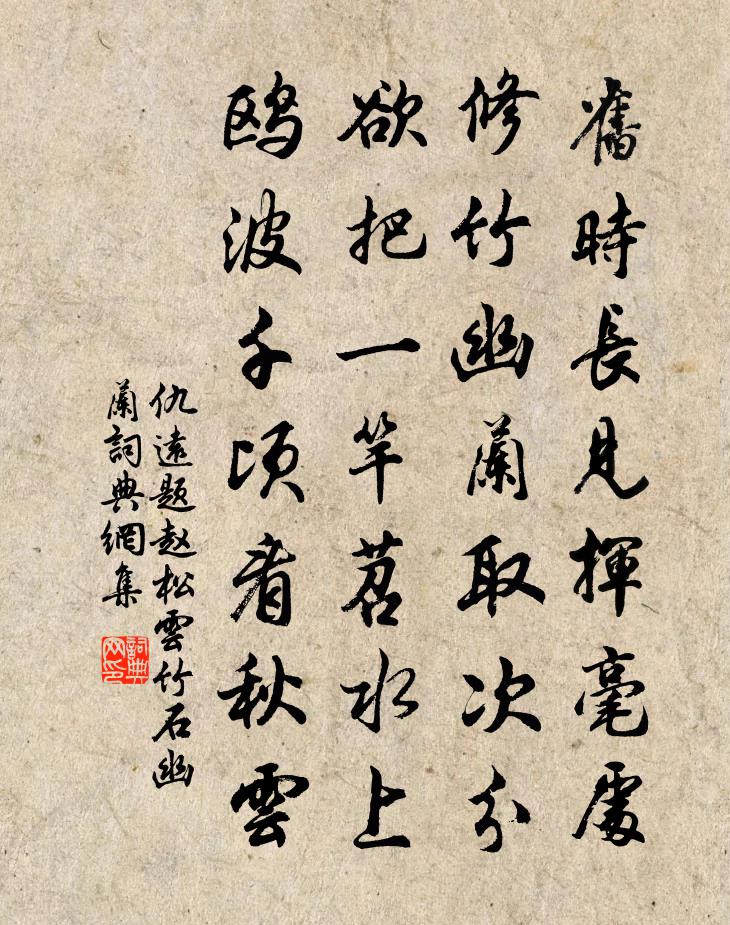 舊時長見揮毫處
修竹幽蘭取次分
欲把一竿苕水上
鷗波千頃看秋雲
仇遠題赵松雲竹石幽
蘭詞典網集
詞典
网印